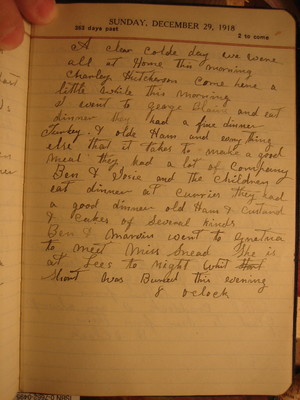 SUNDAY, DECEMBER 29, 1918
363 days past
2 to come
A clear colde day we were
all at Home this morning
Charley Hutcherson Come here a
little while this morning
I went to George and eat
dinner they had a fine dinner
Turkey & olde Ham and every thing
else that it takes to make a good
meal they had a lot of Company
Ben & and the Children
eat dinner at Curries they had
a good dinner old Ham & Custard
& Cakes of Several kinds
Ben & Marvin went to Gretna
to meet Miss Snead She is
at Lees to night
Short was Buried this evening
8 oclock